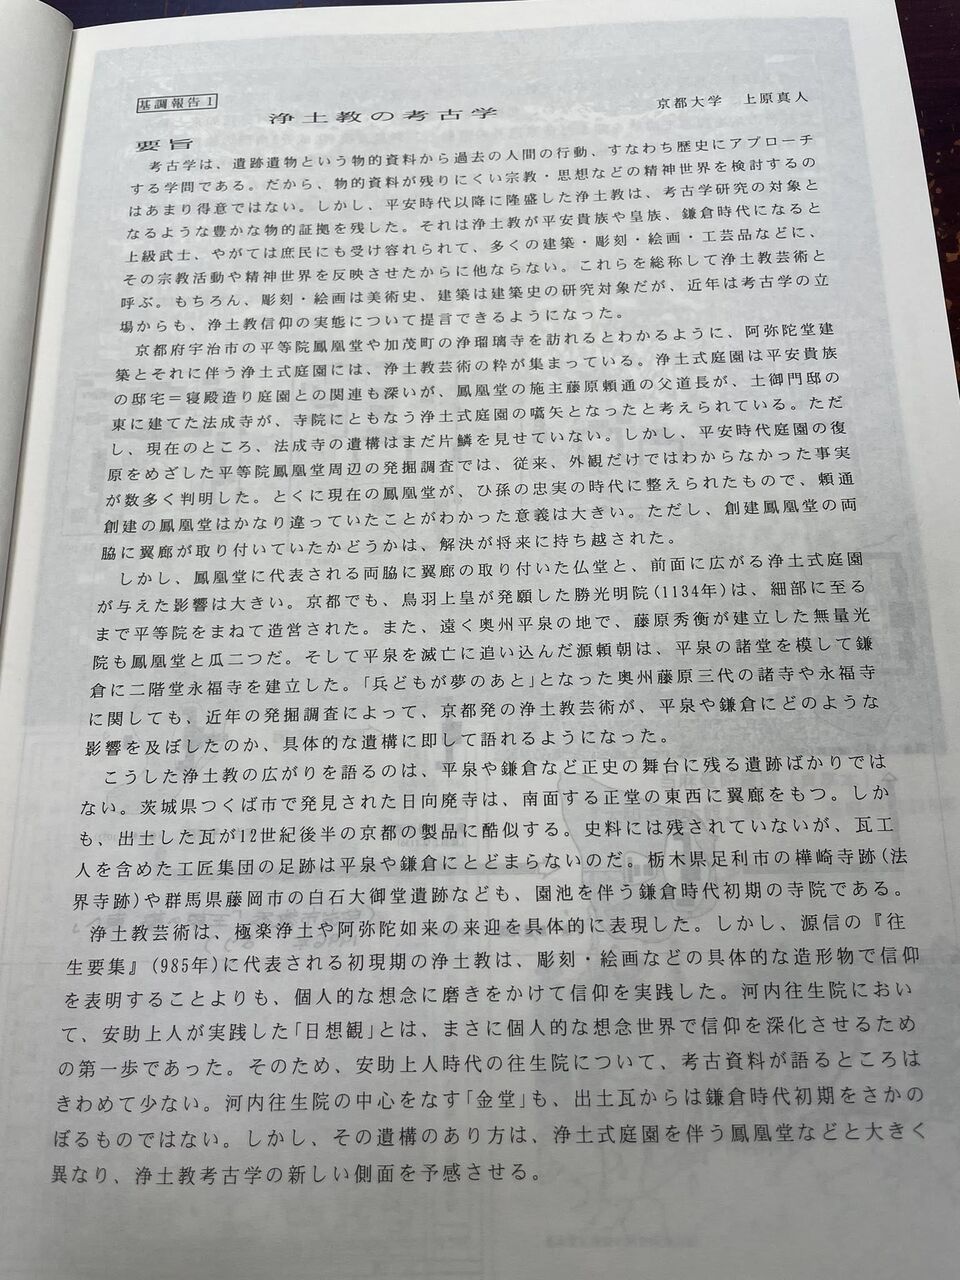 基調報告1
浄土教の考古学
京都大学　上原真人
要旨
　考古学は、遺跡遺物という物的資料から過去の人間の行動、すなわち歴史にアプローチ
する学問である。だから、物的資料が残りにくい宗教・思想などの精神世界を検討するの
はあまり得意ではない。しかし、平安時代以降に隆盛した浄土教は、考古学研究の対象と
なるような豊かな物的証拠を残した。それは浄土教が平安貴族や皇族、鎌倉時代になると
上級武士、やがては庶民にも受け容れられて、多くの建築・彫刻・絵画・工芸品などに、
その宗教活動や精神世界を反映させたからに他ならない。これらを総称して浄土教芸術と
呼ぶ。もちろん、彫刻・絵画は美術史、建築は建築史の研究対象だが、近年は考古学の立
場からも、浄土教信仰の実態について提言できるようになった。
　京都府宇治市の平等院鳳凰堂や加茂町の浄瑠璃寺を訪れるとわかるように、阿弥陀堂建
築とそれに伴う浄土式庭園には、浄土教芸術の粋が集まっている。浄土式庭園は平安貴族
の邸宅＝寝殿造り庭園との関連も深いが、鳳凰堂の施主藤原頼通の父道長が、土御門邸の
東に建てた法成寺が、寺院にともなう浄土式庭園の嚆矢となったと考えられている。ただ
し、現在のところ、法成寺の遺構はまだ片鱗を見せていない。しかし、平安時代庭園の復
原をめざした平等院鳳凰堂周辺の発掘調査では、従来、外観だけではわからなかった事実
が数多く判明した。とくに現在の鳳凰堂が、ひ孫の忠実の時代に整えられたもので、頼通
創建の鳳凰堂はかなり違っていたことがわかった意義は大きい。ただし、創建鳳凰堂の両
脇に翼廊が取り付いていたかどうかは、解決が将来に持ち越された。
　しかし、鳳凰堂に代表される両脇に翼廊の取り付いた仏堂と、前面に広がる浄土式庭園
が与えた影響は大きい。京都でも、鳥羽上皇が発願した勝光明院(1134年)は、細部に至る
まで平等院をまねて造営された。また、遠く奥州平泉の地で、藤原秀衡が建立した無量光
院も鳳凰堂と瓜二つだ。そして平泉を滅亡に追い込んだ源頼朝は、平泉の諸堂を模して鎌
倉に二階堂永福寺を建立した。「兵どもが夢のあと」となった奥州藤原三代の諸寺や永福寺
に関しても、近年の発掘調査によって、京都発の浄土教芸術が、平泉や鎌倉にどのような
影響を及ぼしたのか、具体的な遺構に即して語れるようになった。
　こうした浄土教の広がりを語るのは、平泉や鎌倉など正史の舞台に残る遺跡ばかりでは
ない。茨城県つくば市で発見された日向廃寺は、南面する正堂の東西に翼廊をもつ。しか
も、出土した瓦が12世紀後半の京都の製品に酷似する。史料には残されていないが、瓦工
人を含めた工匠集団の足跡は平泉や鎌倉にとどまらないのだ。栃木県足利市の樺崎寺跡(法
界寺跡)や群馬県藤岡市の白石大御堂遺跡なども、園池を伴う鎌倉時代初期の寺院である。
　浄土教芸術は、極楽浄土や阿弥陀如来の来迎を具体的に表現した。しかし、源信の『往
生要集』(985年)に代表される初現期の浄土教は、彫刻・絵画などの具体的な造形物で信仰
を表明することよりも、個人的な想念に磨きをかけて信仰を実践した。河内往生院におい
て、安助上人が実践した「日想観」とは、まさに個人的な想念世界で信仰を深化させるため
の第一歩であった。そのため、安助上人時代の往生院について、考古資料が語るところは
きわめて少ない。河内往生院の中心をなす「金堂」も、出土瓦からは鎌倉時代初期をさかの
ぼるものではない。しかし、その遺構のあり方は、浄土式庭園を伴う鳳凰堂などと大きく
異なり、浄土教考古学の新しい側面を予感させる。